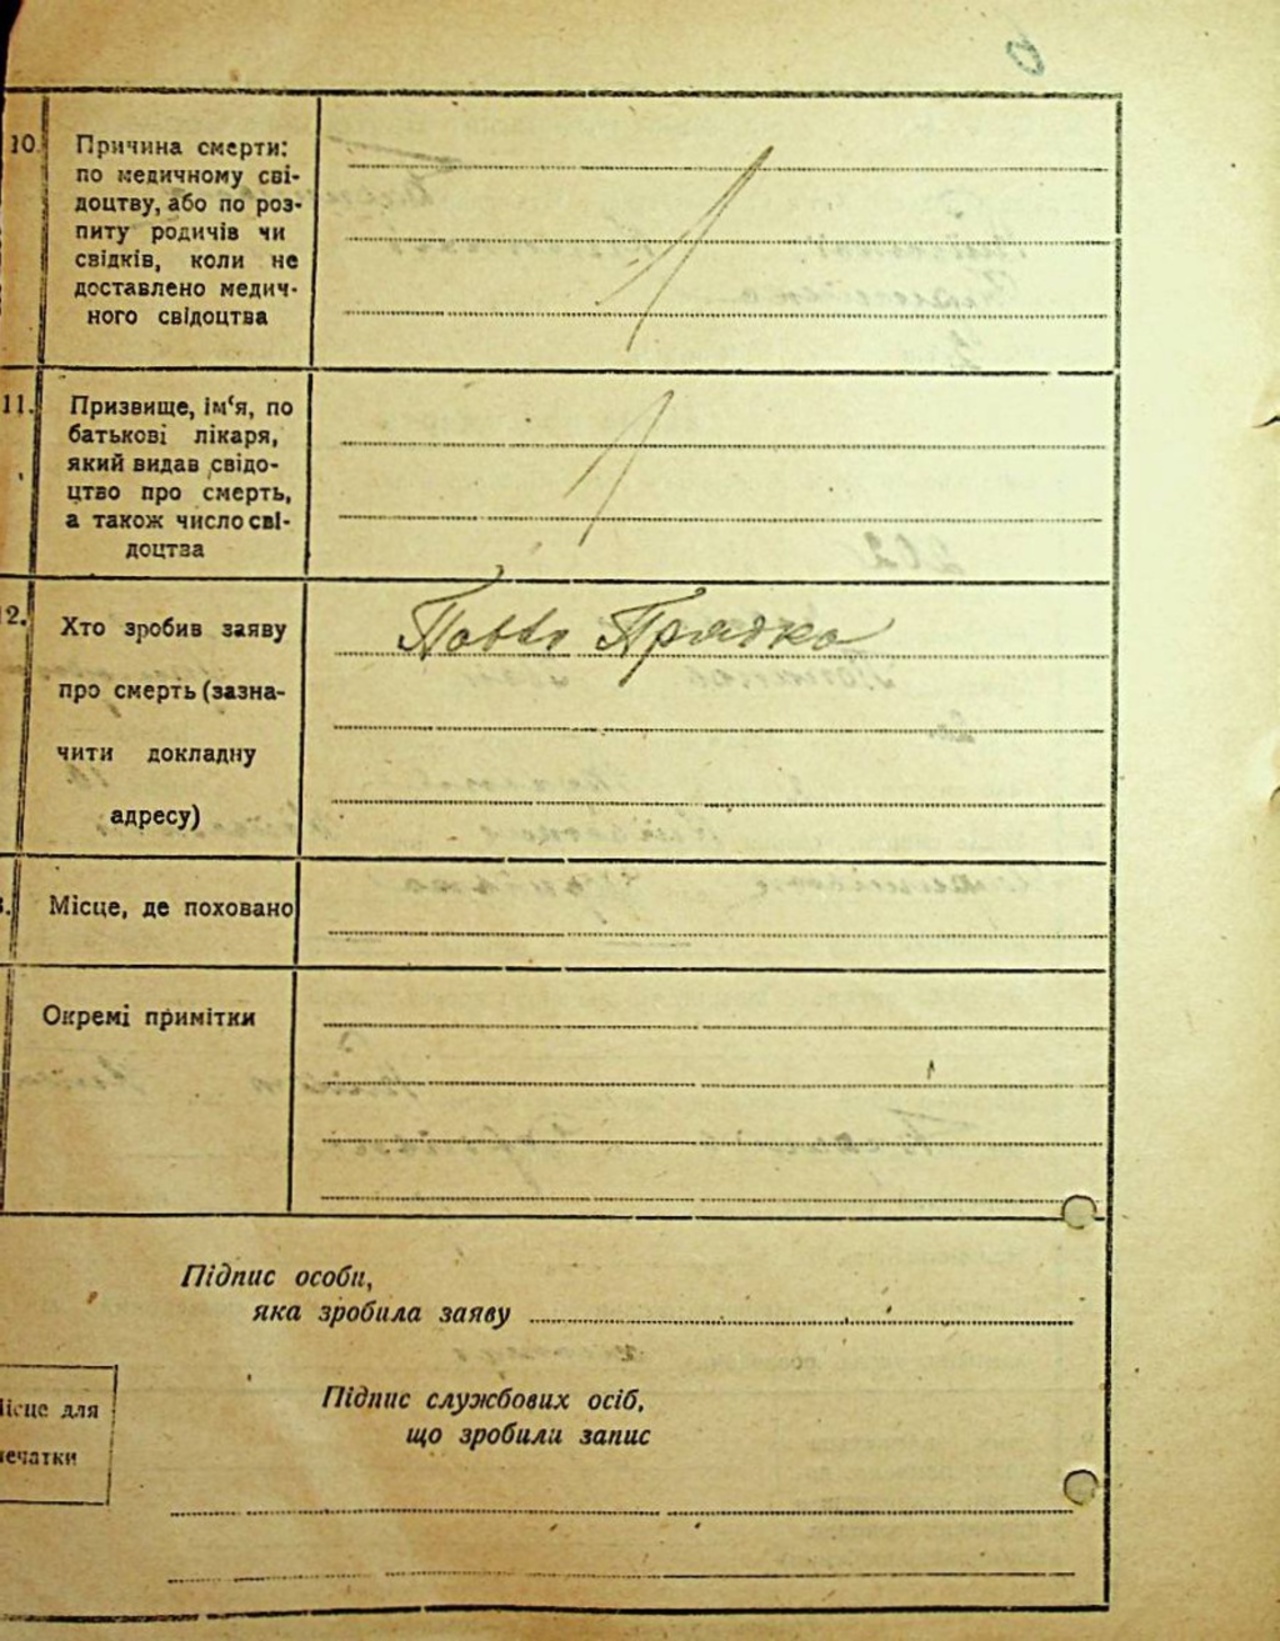 6
10. Причина смерти:
по медичному сві-
доцтву, або по роз-
питу родичів чи
свідків, коли не
доставлено медич-
ного свідоцтва
11. Призвище, ім‘я, по
батькові лікаря,
який видав свідо-
цтво про смерть,
а також число сві-
доцтва
2. Хто зробив заяву
про смерть (зазна-
чити докладну
адресу)
Прядко
Місце, де поховано
Окремі примітки
Підпис особи,
яка зробила заяву
Підпис службових осіб,
що зробили запис
ісце для
ечатки